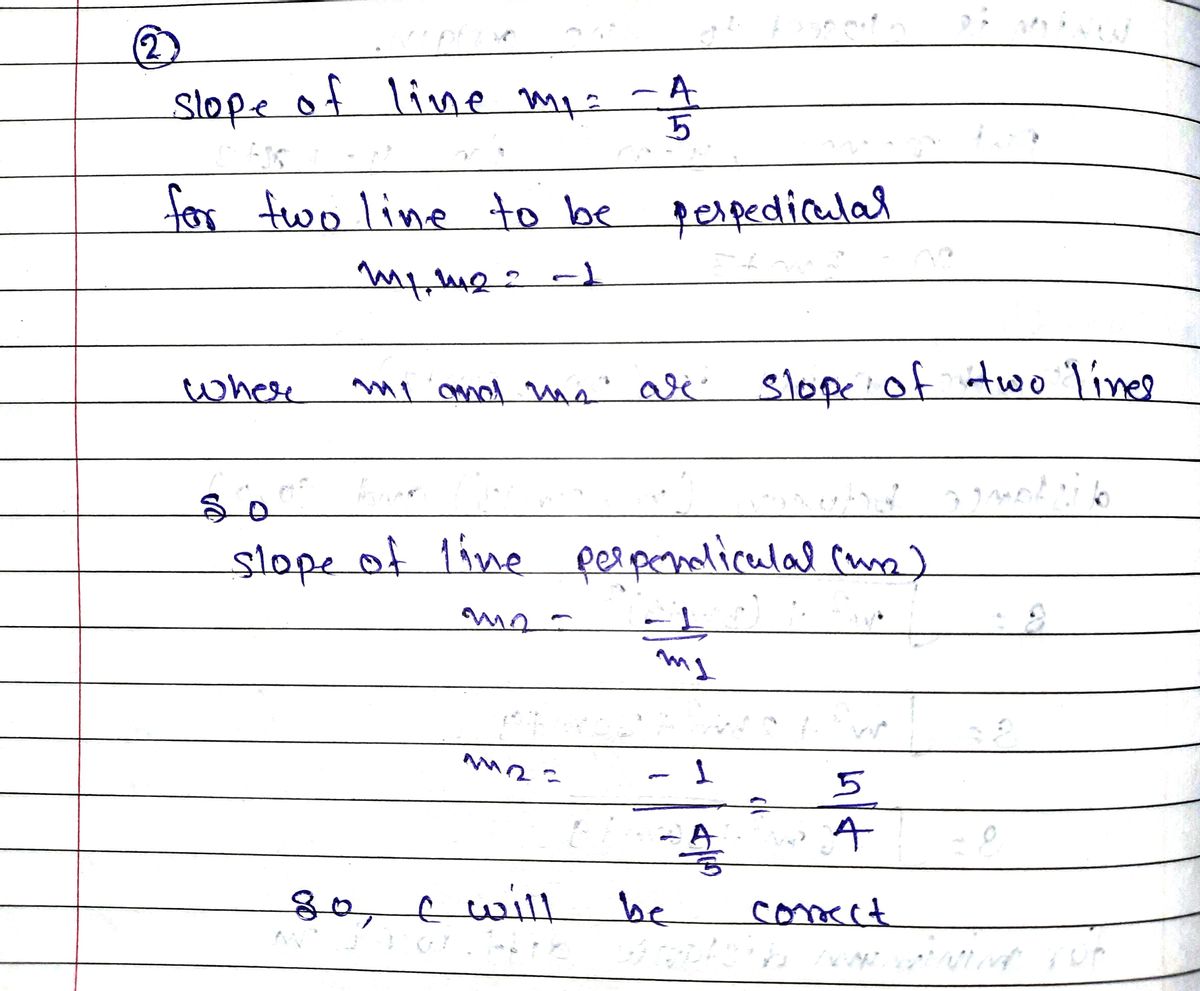 ②
slope of line m1 = -4/5
for two line to be perpedicular
m1.m2 = -1
where m1 and m2 are slope of two lines
so
slope of line perpendicular (m2)
m2 = -1/m1
m2 = -1/(-4/5) = 5/4
so, c will be correct